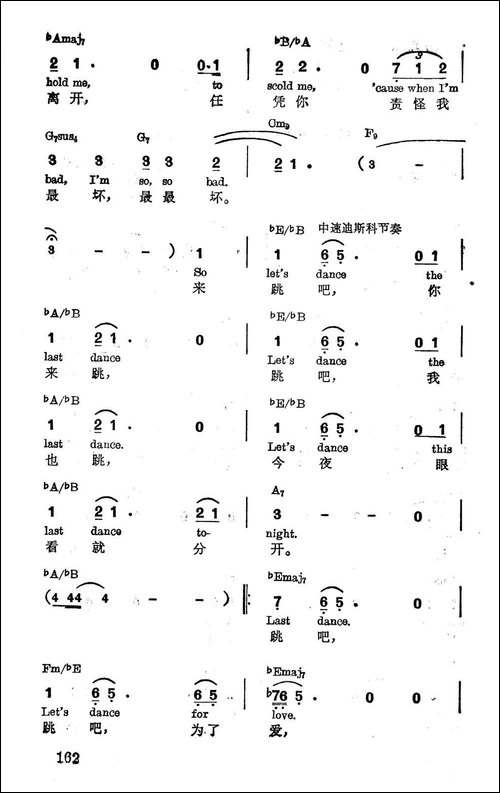 ♭Amaj₇ ♭B/♭A
2 1 · 0 0·1 | 2 2 · 0 7 1 2
hold me, to scold me, 'cause when I'm
离开， 任 凭你 责怪我
G₇sus₄ G₇ Gm₉ F₉
3 3 3 3 2 | 2 1 · (3 –
bad, I'm so, so bad.
最 坏，最最 坏。
♭E/♭B 中速迪斯科节奏
3 – – ) 1 | 1 6 5 · 0 1
So let's dance the
来 跳 吧， 你
♭A/♭B ♭E/♭B
1 2 1 · 0 | 1 6 5 · 0 1
last dance Let's dance the
来 跳， 跳 吧， 我
♭A/♭B ♭E/♭B
1 2 1 · 0 | 1 6 5 · 0 1
last dance. Let's dance this
也 跳， 今 夜 眼
♭A/♭B A₇
1 2 1 · 2 1 | 3 – – 0
last dance to- night.
看 就 分 开。
♭A/♭B ♭Emaj₇
(4 44 4 – – ) ‖: 7 6 5 · 0
Last dance.
跳 吧，
Fm/♭E ♭Emaj₇
1 6 5 · 6 5 | ♭76 5 · 0 0
Let's dance for love.
跳 吧， 为了 爱，
162